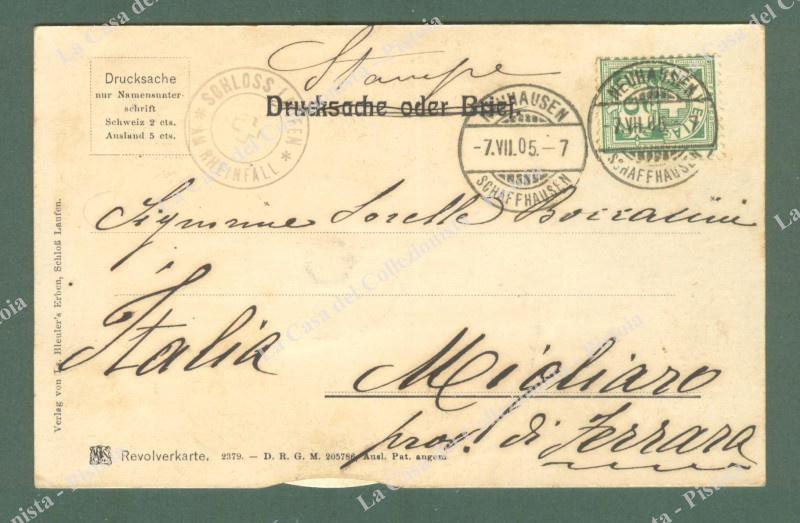 Drucksache
nur Namensunter-
schrift
Schweiz 2 cts.
Ausland 5 cts.
SCHLOSS LAUFEN
AM RHEINFALL
Stampe
Drucksache oder Brief
NEUHAUSEN
-7.VII.05.-7
SCHAFFHAUSEN
NEUHAUSEN
7.VII.05.
SCHAFFHAUSEN
Signorine Sorelle Boccasini
Italia
Migliaro
prov. di Ferrara
Verlag von Ls. Bleuler's Erben, Schloß Laufen.
Revolverkarte. 2379. — D. R. G. M. 205786, Ausl. Pat. angem.
La Casa del Collezionista - Pistoia